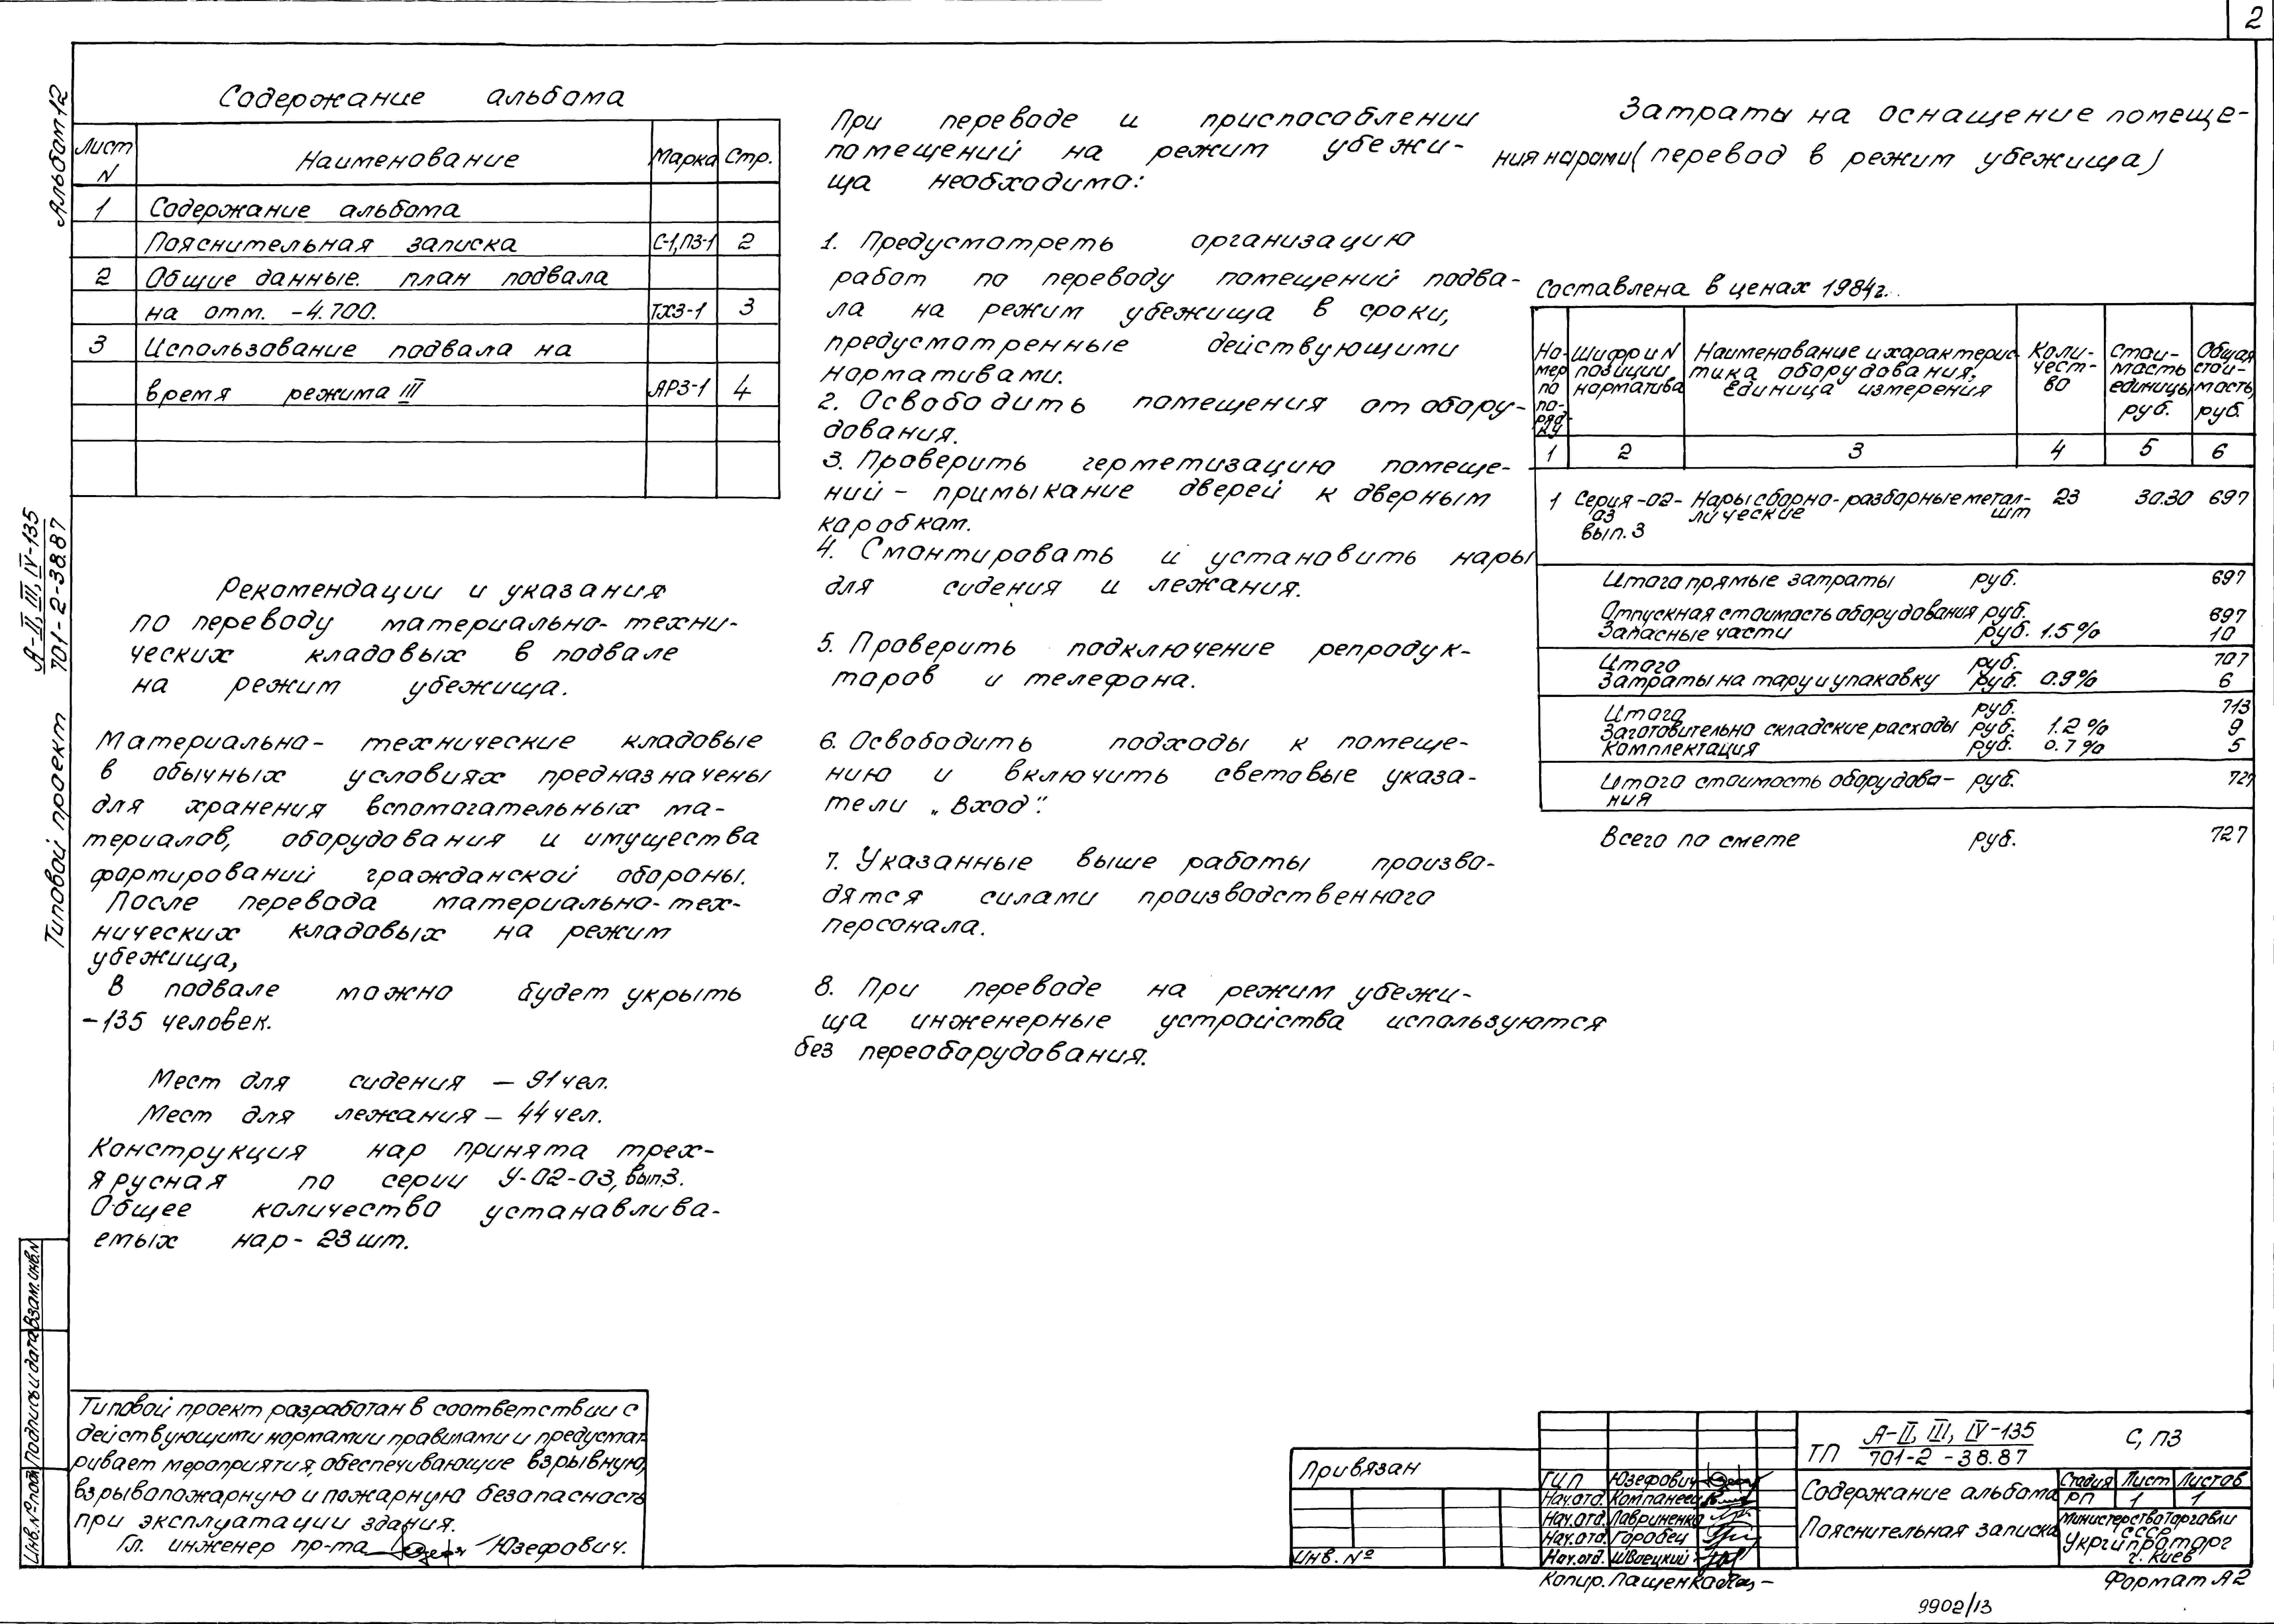 2
Альбом 12
А-II, III, IV-135
701-2-38.87
Типовой проект
Содержание альбома
Лист N Наименование Марка Стр.
1 Содержание альбома
Пояснительная записка С-1,ПЗ-1 2
2 Общие данные. план подвала
на отм. -4.700. ТХЗ-1 3
3 Использование подвала на
время режима III АРЗ-1 4
Рекомендации и указания
по переводу материально-техни-
ческих кладовых в подвале
на режим убежища.
Материально-технические кладовые
в обычных условиях предназначены
для хранения вспомогательных ма-
териалов, оборудования и имущества
формирований гражданской обороны.
После перевода материально-тех-
нических кладовых на режим
убежища,
В подвале можно будет укрыть
-135 человек.
Мест для сидения — 91 чел.
Мест для лежания — 44 чел.
Конструкция нар принята трех-
ярусная по серии У-02-03, вып.3.
Общее количество устанавлива-
емых нар - 23 шт.
Типовой проект разработан в соответствии с
действующими нормами и правилами и предусмат
ривает мероприятия, обеспечивающие взрывную,
взрывопожарную и пожарную безопасность
при эксплуатации здания.
Гл. инженер пр-та Юзефович.
При переводе и приспособлении
помещений на режим убежи-
ща необходимо:
1. Предусмотреть организацию
работ по переводу помещений подва-
ла на режим убежища в сроки,
предусмотренные действующими
нормативами.
2. Освободить помещения от обору-
дования.
3. Проверить герметизацию помеще-
ний - примыкание дверей к дверным
коробкам.
4. Смонтировать и установить нары
для сидения и лежания.
5. Проверить подключение репродук-
торов и телефона.
6. Освободить подходы к помеще-
нию и включить световые указа-
тели „Вход".
7. Указанные выше работы произво-
дятся силами производственного
персонала.
8. При переводе на режим убежи-
ща инженерные устройства используются
без переоборудования.
Затраты на оснащение помеще-
ния нарами (перевод в режим убежища)
Составлена в ценах 1984г.
Но-мер по по-ряд-ку Шифр и N позиции норматива Наименование и характерис-тика оборудования. Единица измерения Коли-чест-во Стои-мость единицы руб. Общая стои-мость, руб.
1 2 3 4 5 6
1 Серия -02- Нары сборно-разборные метал- 23 30.30 697
03 лические шт
вып.3
Итого прямые затраты руб. 697
Отпускная стоимость оборудования руб. 697
Запасные части руб. 1.5% 10
Итого руб. 707
Затраты на тару и упаковку руб. 0.9% 6
Итого руб. 713
Заготовительно складские расходы руб. 1.2% 9
Комплектация руб. 0.7% 5
Итого стоимость оборудова- руб. 727
ния
Всего по смете руб. 727
Инв.№ подл. Подпись и дата Взам.инв.N
Привязан
Инв.№
ГИП Юзефович
Нач.отд. Компанеец
Нач.отд. Лавриненко
Нач.отд. Горобец
Нач.отд. Швоецкий
ТП А-II, III, IV-135
701-2-38.87
С, ПЗ
Содержание альбома
Пояснительная записка
Стадия Лист Листов
РП 1 1
Министерство торговли
СССР
Укргипроторг
г. Киев
Копир. Пащенко
Формат А2
9902/13